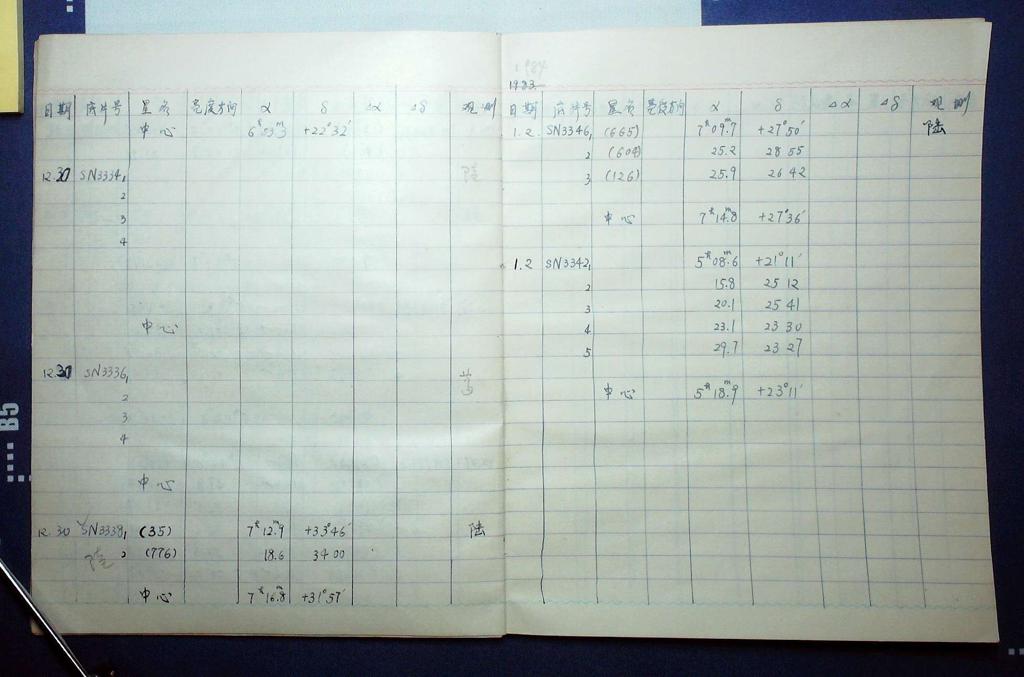 日期 底片号 星名 亮度方向 α δ Δα Δδ 观测
中心 6ʰ53ᵐ3 +22°32′
12.30 SN3334,1
2
3
4
中心
12.30 SN3336,1
2
3
4
中心
12.30 SN3338,1 (35) 7ʰ12ᵐ.9 +33°46′ 陆
2 (776) 18.6 34 00
中心 7ʰ16ᵐ.8 +31°57′
1984
1983
日期 底片号 星名 亮度方向 α δ Δα Δδ 观测
1.2 SN3346,1 (665) 7ʰ09ᵐ.7 +27°50′ 陆
2 (604) 25.2 28 55
3 (126) 25.9 26 42
中心 7ʰ14ᵐ.8 +27°36′
1.2 SN3342,1 5ʰ08ᵐ.6 +21°11′
2 15.8 25 12
3 20.1 25 41
4 23.1 23 30
5 29.7 23 27
中心 5ʰ18ᵐ.9 +23°11′
B5